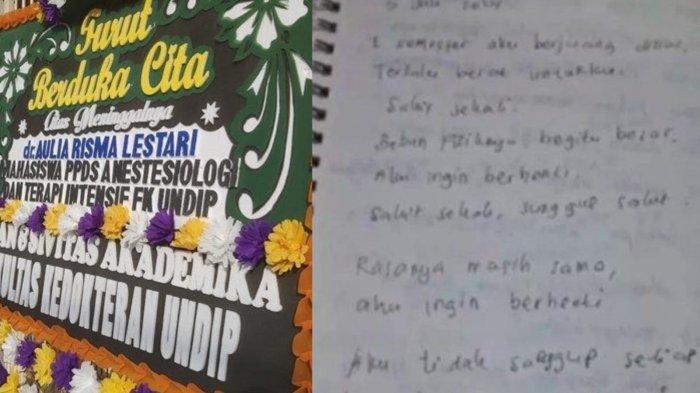 Turut
Berduka Cita
Atas Meninggalnya
dr. AULIA RISMA LESTARI
MAHASISWA PPDS ANESTESIOLOGI
DAN TERAPI INTENSIF FK UNDIP
SIVITAS AKADEMIKA
KEDOKTERAN UNDIP
1 semester aku berjuang
Terlalu berat untukku.
Sakit sekali.
Beban fisiknya begitu besar.
Aku ingin berhenti.
Sakit sekali, sungguh sakit.
Rasanya masih sama,
aku ingin berhenti
Aku tidak sanggup setiap